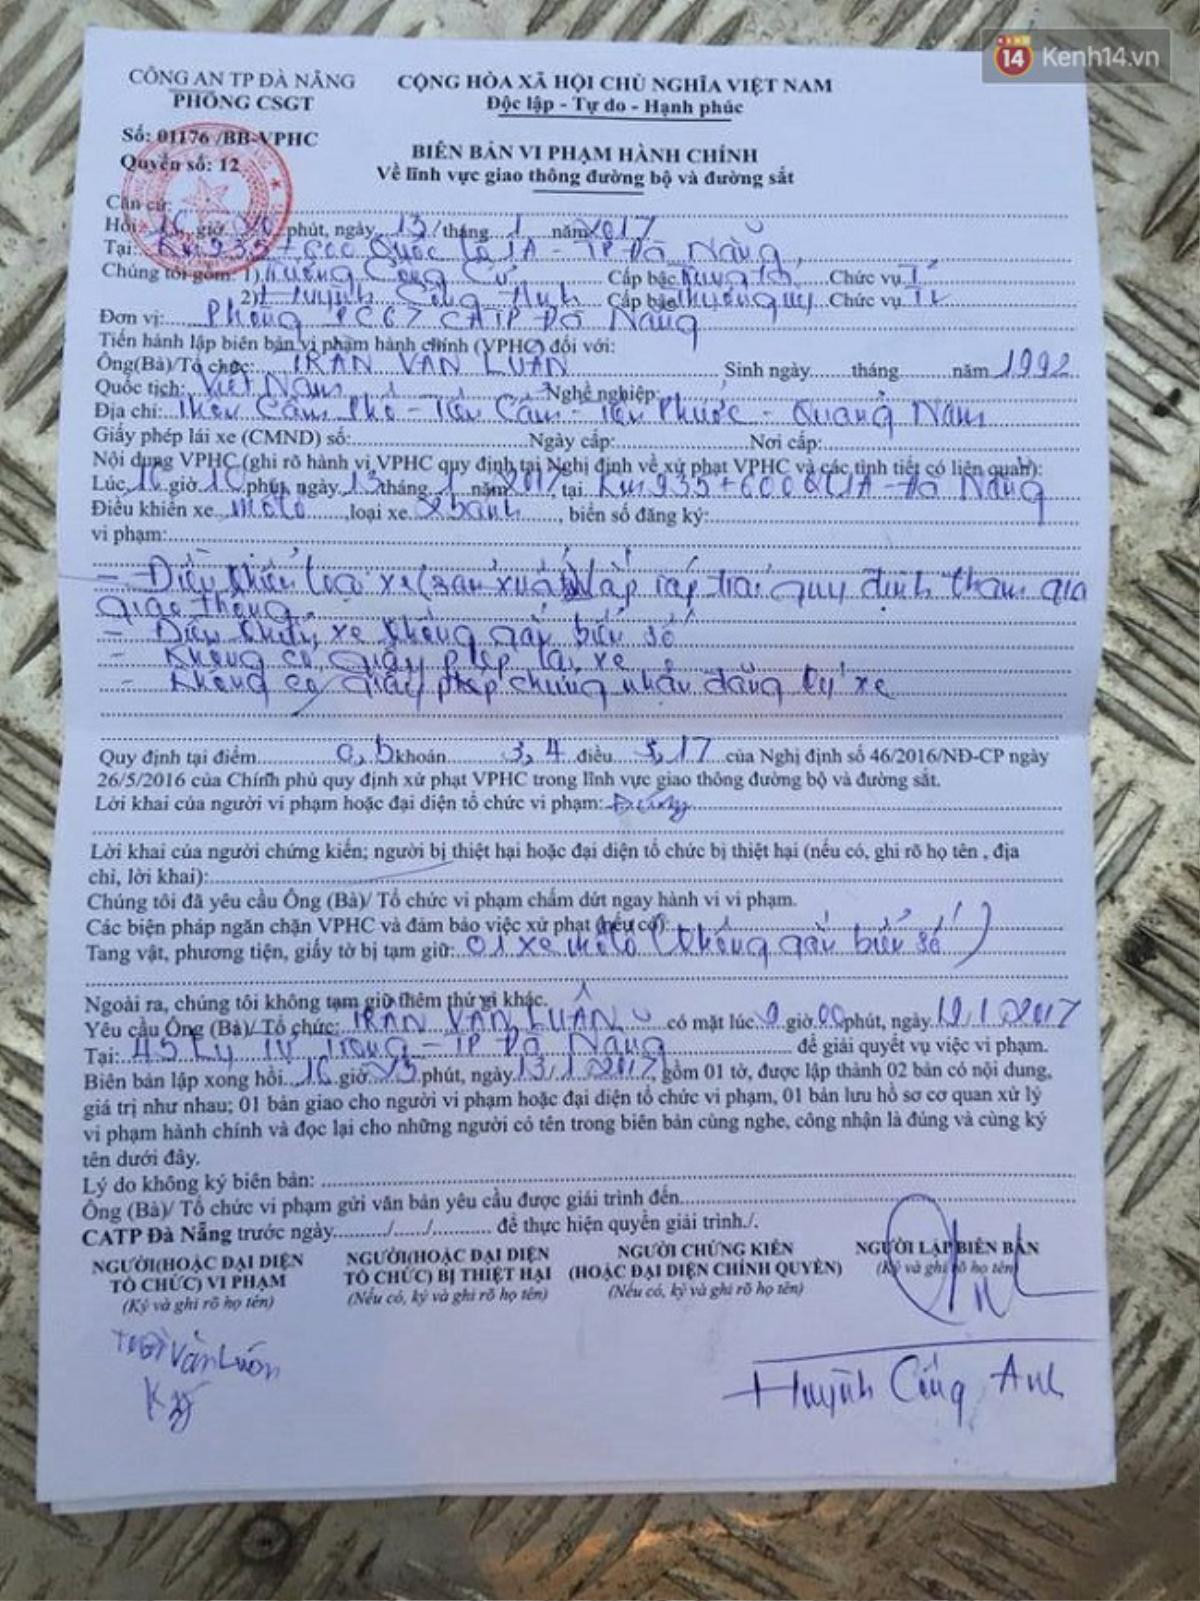 14 Kenh14.vn
CÔNG AN TP ĐÀ NẴNG
PHÒNG CSGT
CỘNG HÒA XÃ HỘI CHỦ NGHĨA VIỆT NAM
Độc lập - Tự do - Hạnh phúc
Số: 01176 /BB-VPHC
Quyển số: 12
BIÊN BẢN VI PHẠM HÀNH CHÍNH
Về lĩnh vực giao thông đường bộ và đường sắt
Căn cứ:
Hồi 16 giờ 10 phút, ngày 13 tháng 1 năm 2017
Tại: Km 935 + 600 Quốc lộ 1A - TP Đà Nẵng
Chúng tôi gồm: 1) Công Cấp bậc Chức vụ
2) Huỳnh Công Anh Cấp bậc Thượng úy Chức vụ
Đơn vị: Phòng PC67 CATP Đà Nẵng
Tiến hành lập biên bản vi phạm hành chính (VPHC) đối với:
Ông(Bà)/Tổ chức: TRẦN VĂN LUÂN Sinh ngày tháng năm 1992
Quốc tịch: Việt Nam Nghề nghiệp:
Địa chỉ: Thôn Cẩm Phô - Tiên Cẩm - Tiên Phước - Quảng Nam
Giấy phép lái xe (CMND) số: Ngày cấp: Nơi cấp:
Nội dung VPHC (ghi rõ hành vi VPHC quy định tại Nghị định về xử phạt VPHC và các tình tiết có liên quan):
Lúc 16 giờ 10 phút, ngày 13 tháng 1 năm 2017, tại Km 935 + 600 QL1A - Đà Nẵng
Điều khiển xe môtô, loại xe 2 bánh, biển số đăng ký:
vi phạm:
- Điều khiển loại xe (sản xuất) lắp ráp trái quy định tham gia
giao thông.
- Điều khiển xe không gắn biển số
- Không có giấy phép lái xe
- Không có giấy phép chứng nhận đăng ký xe
Quy định tại điểm c, b khoản 3, 4 điều 5, 17 của Nghị định số 46/2016/NĐ-CP ngày
26/5/2016 của Chính phủ quy định xử phạt VPHC trong lĩnh vực giao thông đường bộ và đường sắt.
Lời khai của người vi phạm hoặc đại diện tổ chức vi phạm: Đúng
Lời khai của người chứng kiến; người bị thiệt hại hoặc đại diện tổ chức bị thiệt hại (nếu có, ghi rõ họ tên , địa
chỉ, lời khai):
Chúng tôi đã yêu cầu Ông (Bà)/ Tổ chức vi phạm chấm dứt ngay hành vi vi phạm.
Các biện pháp ngăn chặn VPHC và đảm bảo việc xử phạt (nếu có):
Tang vật, phương tiện, giấy tờ bị tạm giữ: 01 xe môtô (không gắn biển số)
Ngoài ra, chúng tôi không tạm giữ thêm thứ gì khác.
Yêu cầu Ông (Bà)/ Tổ chức: TRẦN VĂN LUÂN có mặt lúc 9 giờ 00 phút, ngày 19/1/2017
Tại: 45 Lý Tự Trọng - TP Đà Nẵng để giải quyết vụ việc vi phạm.
Biên bản lập xong hồi 16 giờ 25 phút, ngày 13/1/2017, gồm 01 tờ, được lập thành 02 bản có nội dung,
giá trị như nhau; 01 bản giao cho người vi phạm hoặc đại diện tổ chức vi phạm, 01 bản lưu hồ sơ cơ quan xử lý
vi phạm hành chính và đọc lại cho những người có tên trong biên bản cùng nghe, công nhận là đúng và cùng ký
tên dưới đây.
Lý do không ký biên bản:
Ông (Bà)/ Tổ chức vi phạm gửi văn bản yêu cầu được giải trình đến
CATP Đà Nẵng trước ngày / / để thực hiện quyền giải trình./.
NGƯỜI(HOẶC ĐẠI DIỆN
TỔ CHỨC) VI PHẠM
(Ký và ghi rõ họ tên)
NGƯỜI(HOẶC ĐẠI DIỆN
TỔ CHỨC) BỊ THIỆT HẠI
(Nếu có, ký và ghi rõ họ tên)
NGƯỜI CHỨNG KIẾN
(HOẶC ĐẠI DIỆN CHÍNH QUYỀN)
(Nếu có, ký và ghi rõ họ tên)
NGƯỜI LẬP BIÊN BẢN
(Ký và ghi rõ họ tên)
Văn Luân
Huỳnh Công Anh